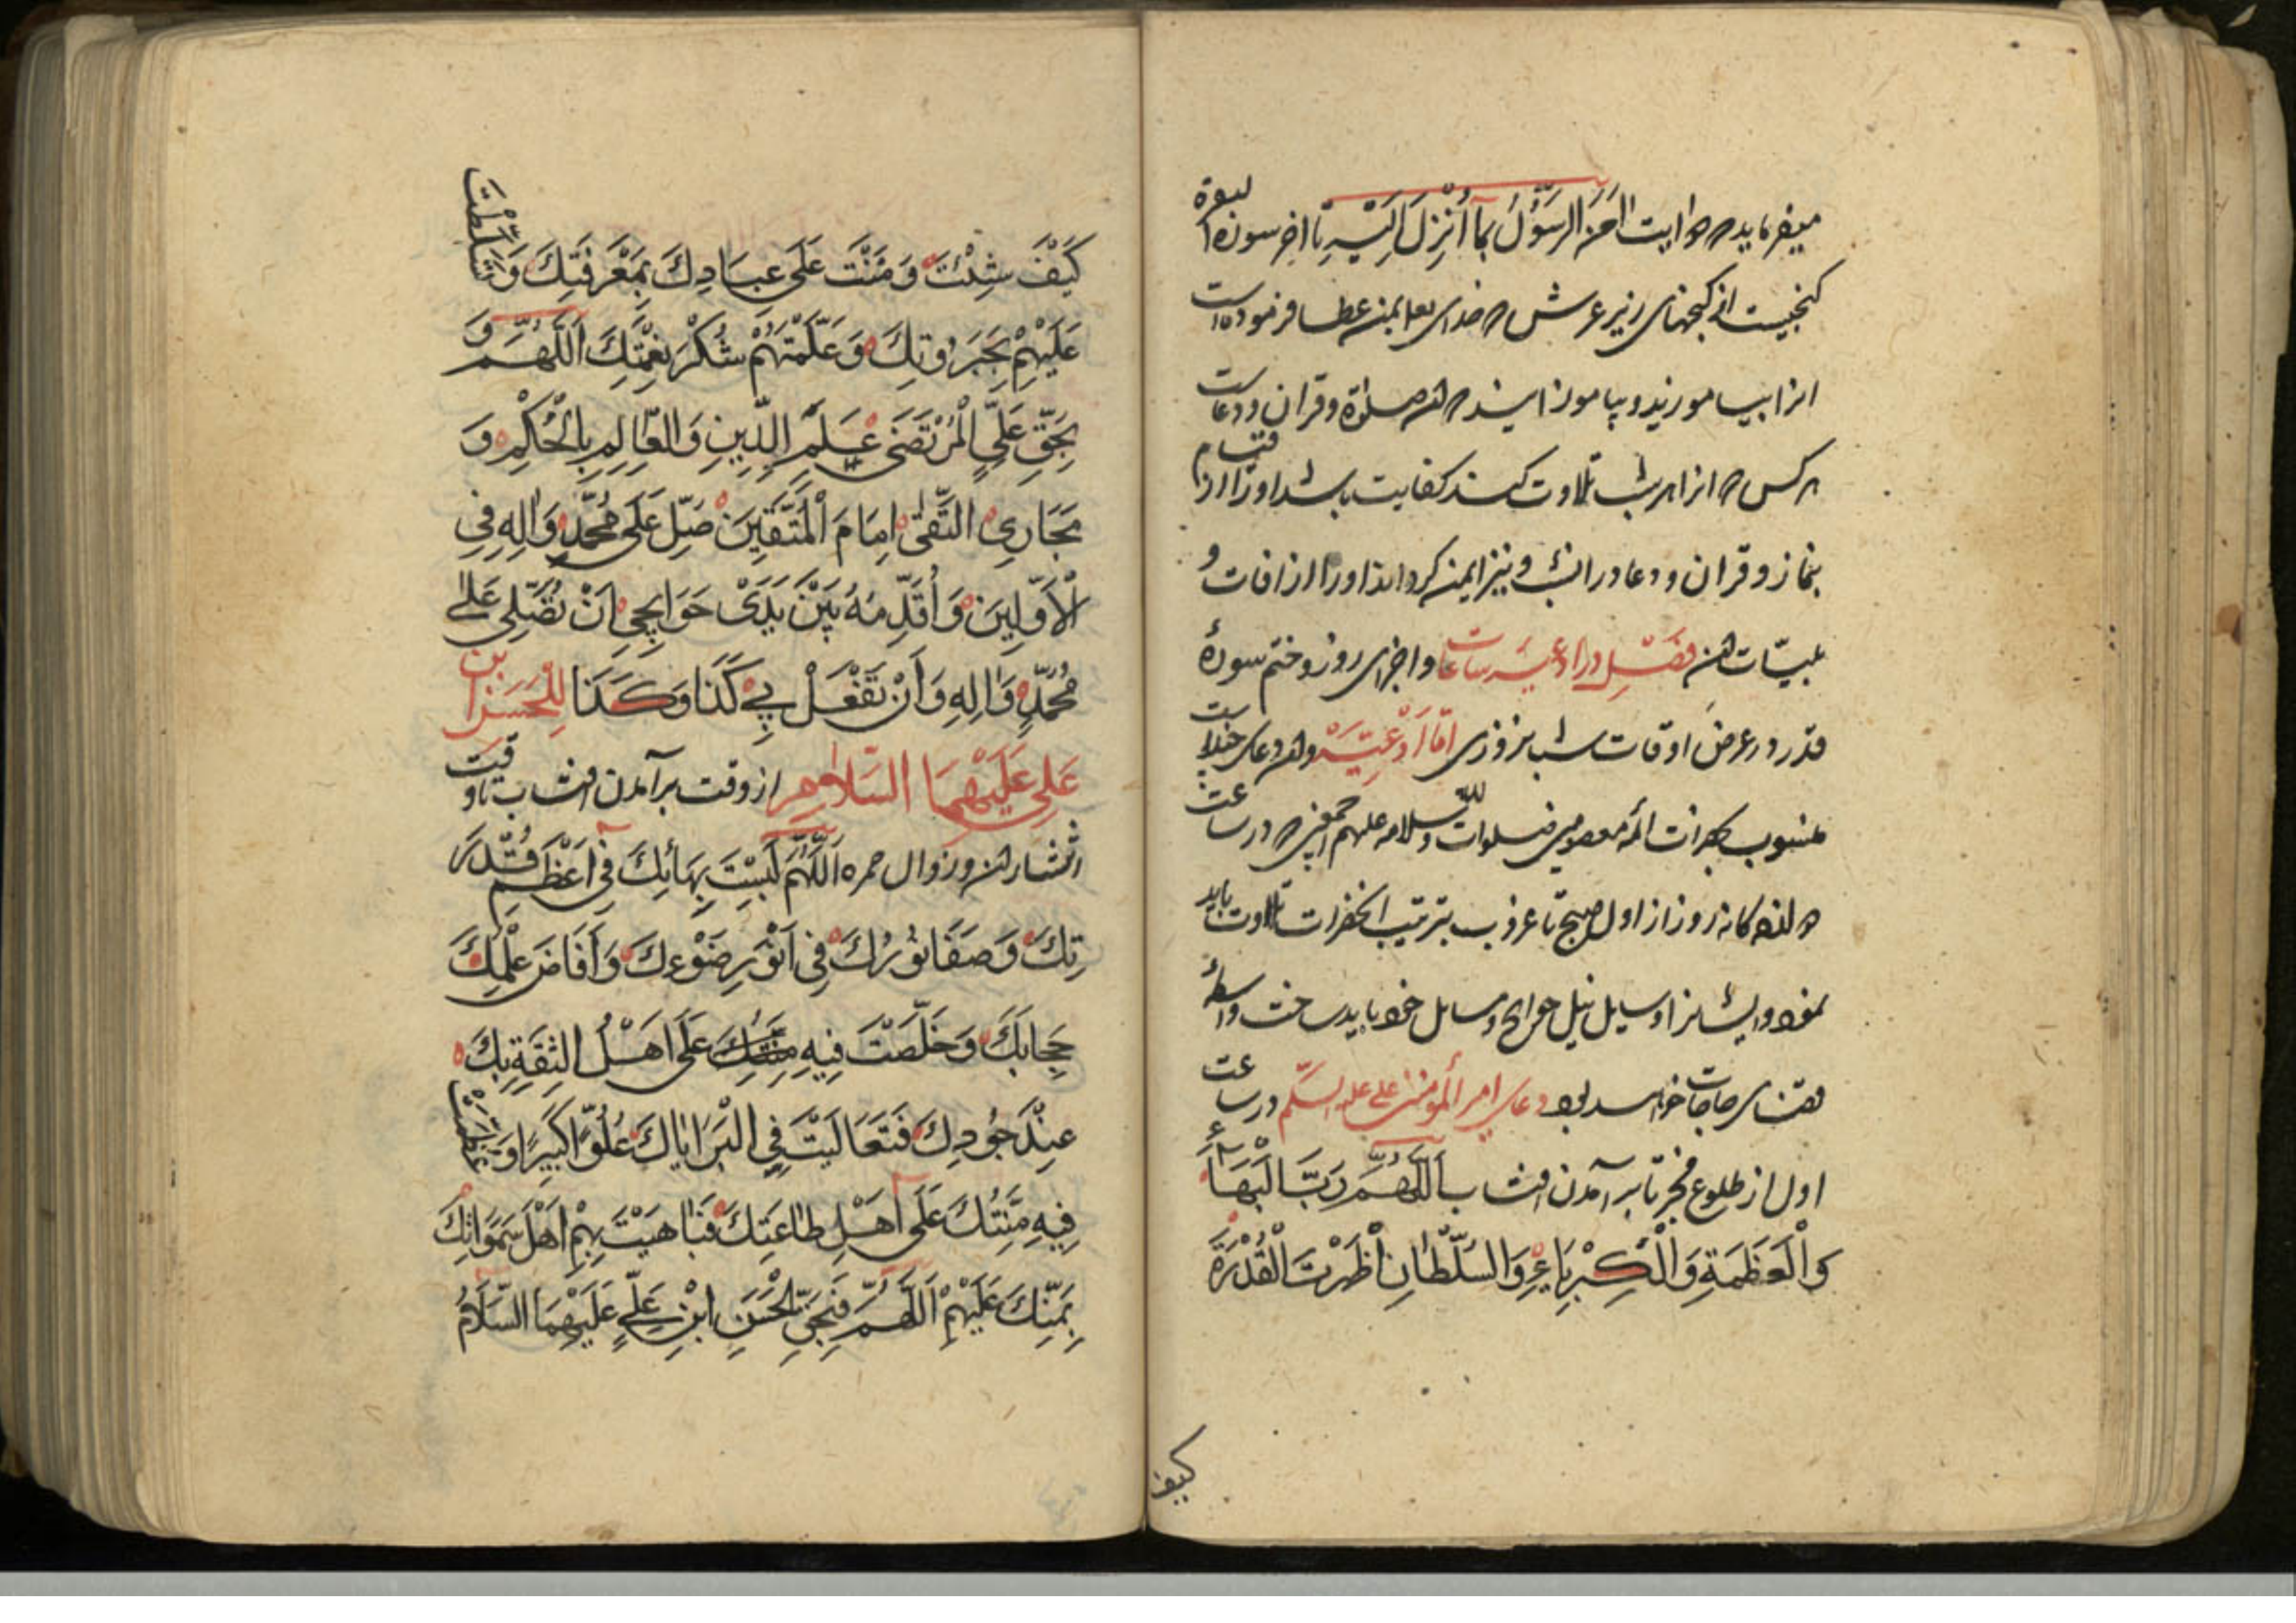 میفرماید که دو ایت اٰمَنَ الرَّسُوْلُ بِمَآ اُنْزِلَ اِلَیْهِ تا اخر سوره البقرة
کنجیست از کنجهای زیر عرش که خدای تعا بمن عطا فرموده است
انرا بیاموزید و بیاموزانید که صلوة و قران و دعاست
هر کس که انرا هر شب تلاوت کند کفایت باشد او را از قیام
بنماز و قران و دعا در انشب و نیز ایمن کرداند او را از افات و
بلیّات فَصْل در ادعیه ساعات و اجزای روز و ختم سورهٔ
قدر در عرض اوقات شبانروزی امّا اَدْعِیَه و دعای چند است
منسوب بحضرات ائمه معصومین صلوات اللّه و سلامه علیهم اجمعین که در ساعت
دوازده کانه روز از اول صبح تا غروب بترتیب انحضرات تلاوت باید
نمود و ایشانرا وسیله نیل حوایج و مسایل خود باید ساخت و واسطهٔ
قضای حاجات خواسد بود دعای امیر المؤمنین علی علیه السّلم در ساعت
اول از طلوع فجر تا بر آمدن افتاب اَللّٰهُمَّ رَبَّ الْبَهَآءِ
وَ الْعَظَمَةِ وَ الْكِبْرِیَاءِ وَ السُّلْطَانِ اَظْهَرْتَ الْقُدْرَةَ
کیف
كَیْفَ شِئْتَ وَ مَنَنْتَ عَلٰی عِبَادِكَ بِمَعْرِفَتِكَ وَ تَسَلَّطْتَ
عَلَیْهِمْ بِجَبَرُوتِكَ وَ عَلَّمْتَهُمْ شُكْرَ نِعْمَتِكَ اَللّٰهُمَّ وَ
بِحَقِّ عَلِیٍّ الْمُرْتَضٰی عَلَمِ الدِّینِ وَ الْعَالِمِ بِالْحُكْمِ وَ
مَجَارِی التُّقٰی اِمَامَ الْمُتَّقِینَ صَلِّ عَلٰی مُحَمَّدٍ وَ اٰلِهِ فِی
الْاَوَّلِینَ وَ اُقَدِّمُهُ بَیْنَ یَدَیْ حَوَایِجِی اَنْ تُصَلِّیَ عَلٰی
مُحَمَّدٍ وَ اٰلِهِ وَ اَنْ تَفْعَلَ بِی كَذَا وَ كَذَا لِلْحَسَنِ بن
عَلِی عَلَیْهِمَا السَّلَام از وقت بر آمدن افتاب تا وقت
انتشار و زوال حمره اَللّٰهُمَّ لَبِسْتَ بِهَائِكَ فِی اَعْظَمِ قُدْرَ
تِكَ وَ صَفَا نُورُكَ فِی اَنْوَرِ ضَوْءِكَ وَ اَفَاضَ عِلْمُكَ
حِجَابَكَ وَ خَلَّصْتَ فِیهِ عَلٰی اَهْلِ الثِّقَةِ بِكَ
عِنْدَ جُودِكَ فَتَعَالَیْتَ فِی كِبْرِیَائِكَ عُلُوًّا كَبِیرًا وَ
فِیهِ مَنُّتُكَ عَلٰی اَهْلِ طَاعَتِكَ فَبَاهَیْتَ بِهِمْ اَهْلَ سَمٰوَاتِكَ
بِمَنِّكَ عَلَیْهِمْ اَللّٰهُمَّ فَبِحَقِّ الْحَسَنِ ابْنِ عَلِیٍّ عَلَیْهِمَا السَّلَامُ